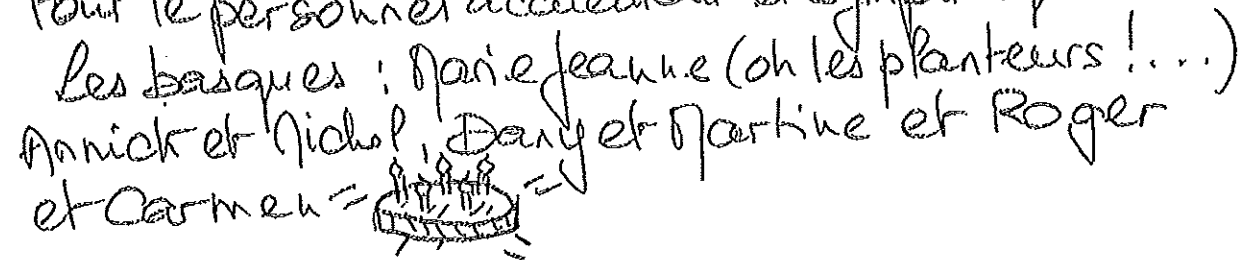 Pour le personnel
Les basques : Marie Jeanne (oh les planteurs !....)
Annick et Michel, Dany et Martine et Roger
et Carmen =